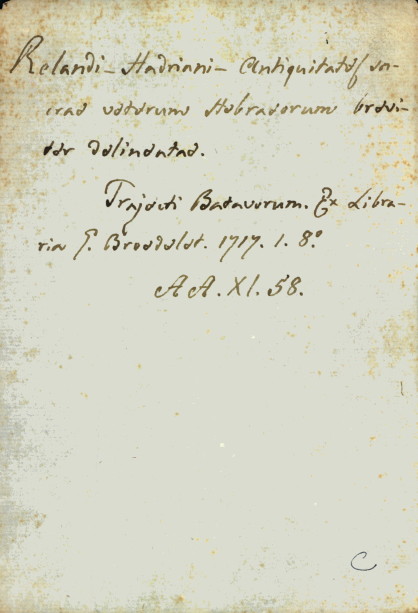 Relandi Hadriani Antiquitates sa-
crae veterum Hebraeorum brevi-
ter delineatae.
Trajecti Batavorum. Ex Libra-
ria G. Broedelet. 1717. 1. 8.º
AA. XI. 58.
C